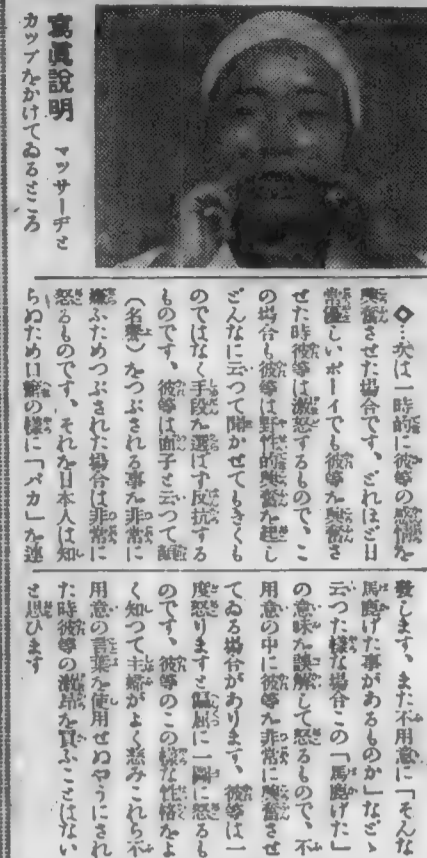 寫眞說明 マッサーヂと
カップをかけてゐるところ
◇…次は一時的に彼等の感情を
興奮させた場合です、どれほど日
常優しいボーイでも彼等を興奮さ
せた時彼等は激怒するもので、こ
の場合も彼等は野性的興奮を起し
どんなに云つて聞かせてもきくも
のではなく手段を選ばず反抗する
ものです、彼等は面子と云つて顏
(名譽)をつぶされる事を非常に
嫌ふためつぶされた場合は非常に
怒るものです、それを日本人は知
らぬため口癖の様に「バカ」を連
發します、また不用意に「そんな
馬鹿げた事があるものか」などゝ
云つた様な場合この「馬鹿げた」
の意味を誤解して怒るもので、不
用意の中に彼等を非常に興奮させ
てゐる場合があります、彼等は一
度怒りますと偏屈に一圖に怒るも
のです、彼等のこの様な性格をよ
く知つて主婦がよく愼みこれら不
用意の言葉を使用せぬやうにされ
た時彼等の激昂を買ふことはない
と思ひます